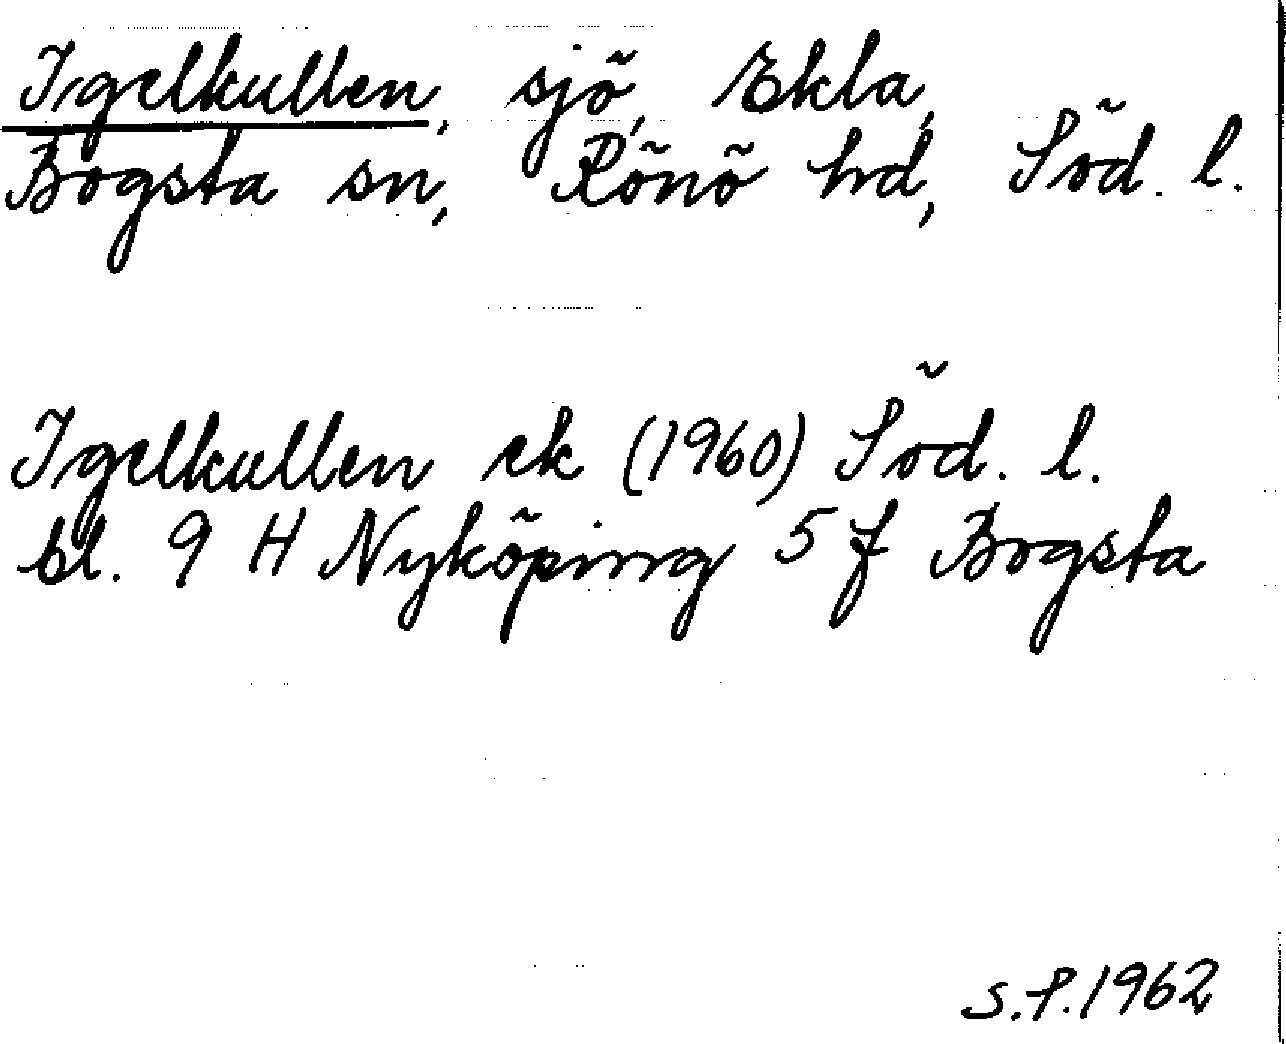 Igelkullen, sjö, Ekla,
Bogsta sn, Rönö hd, Söd. l.
Igelkullen ek (1960) Söd. l.
bl. 9 H Nyköping 5 f Bogsta
S.P. 1962